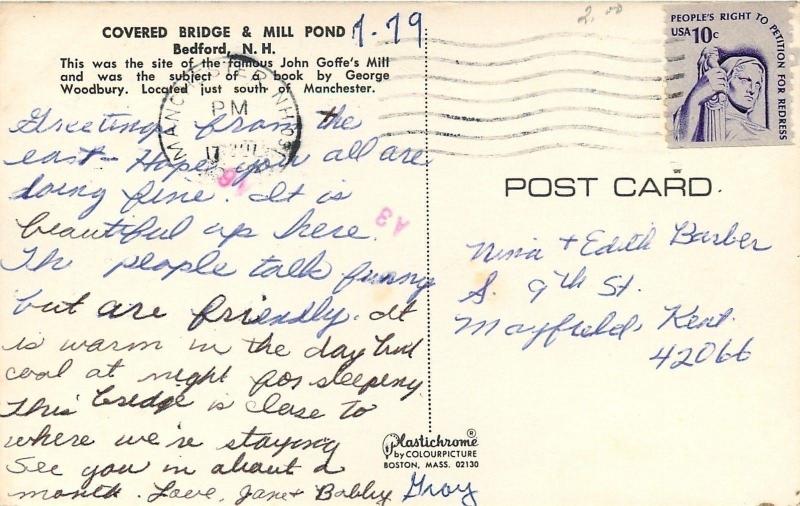 COVERED BRIDGE & MILL POND
Bedford, N. H.
This was the site of the famous John Goffe's Mill
and was the subject of a book by George
Woodbury. Located just south of Manchester.
7-79
2.00
PEOPLE'S RIGHT TO PETITION FOR REDRESS
USA 10c
MANCHESTER NH
PM
17
Greetings from the
east - Hope you all are
doing fine. It is
beautiful up here.
The people talk funny
but are friendly. It
is warm in the day but
cool at night for sleeping
This bridge is close to
where we're staying
See you in about a
month. Love, Jane + Bobby Gray
A3
POST CARD
Nina + Edith Barber
S. 9th St.
Mayfield, Kent.
42066
Plastichrome®
by COLOURPICTURE
BOSTON, MASS. 02130